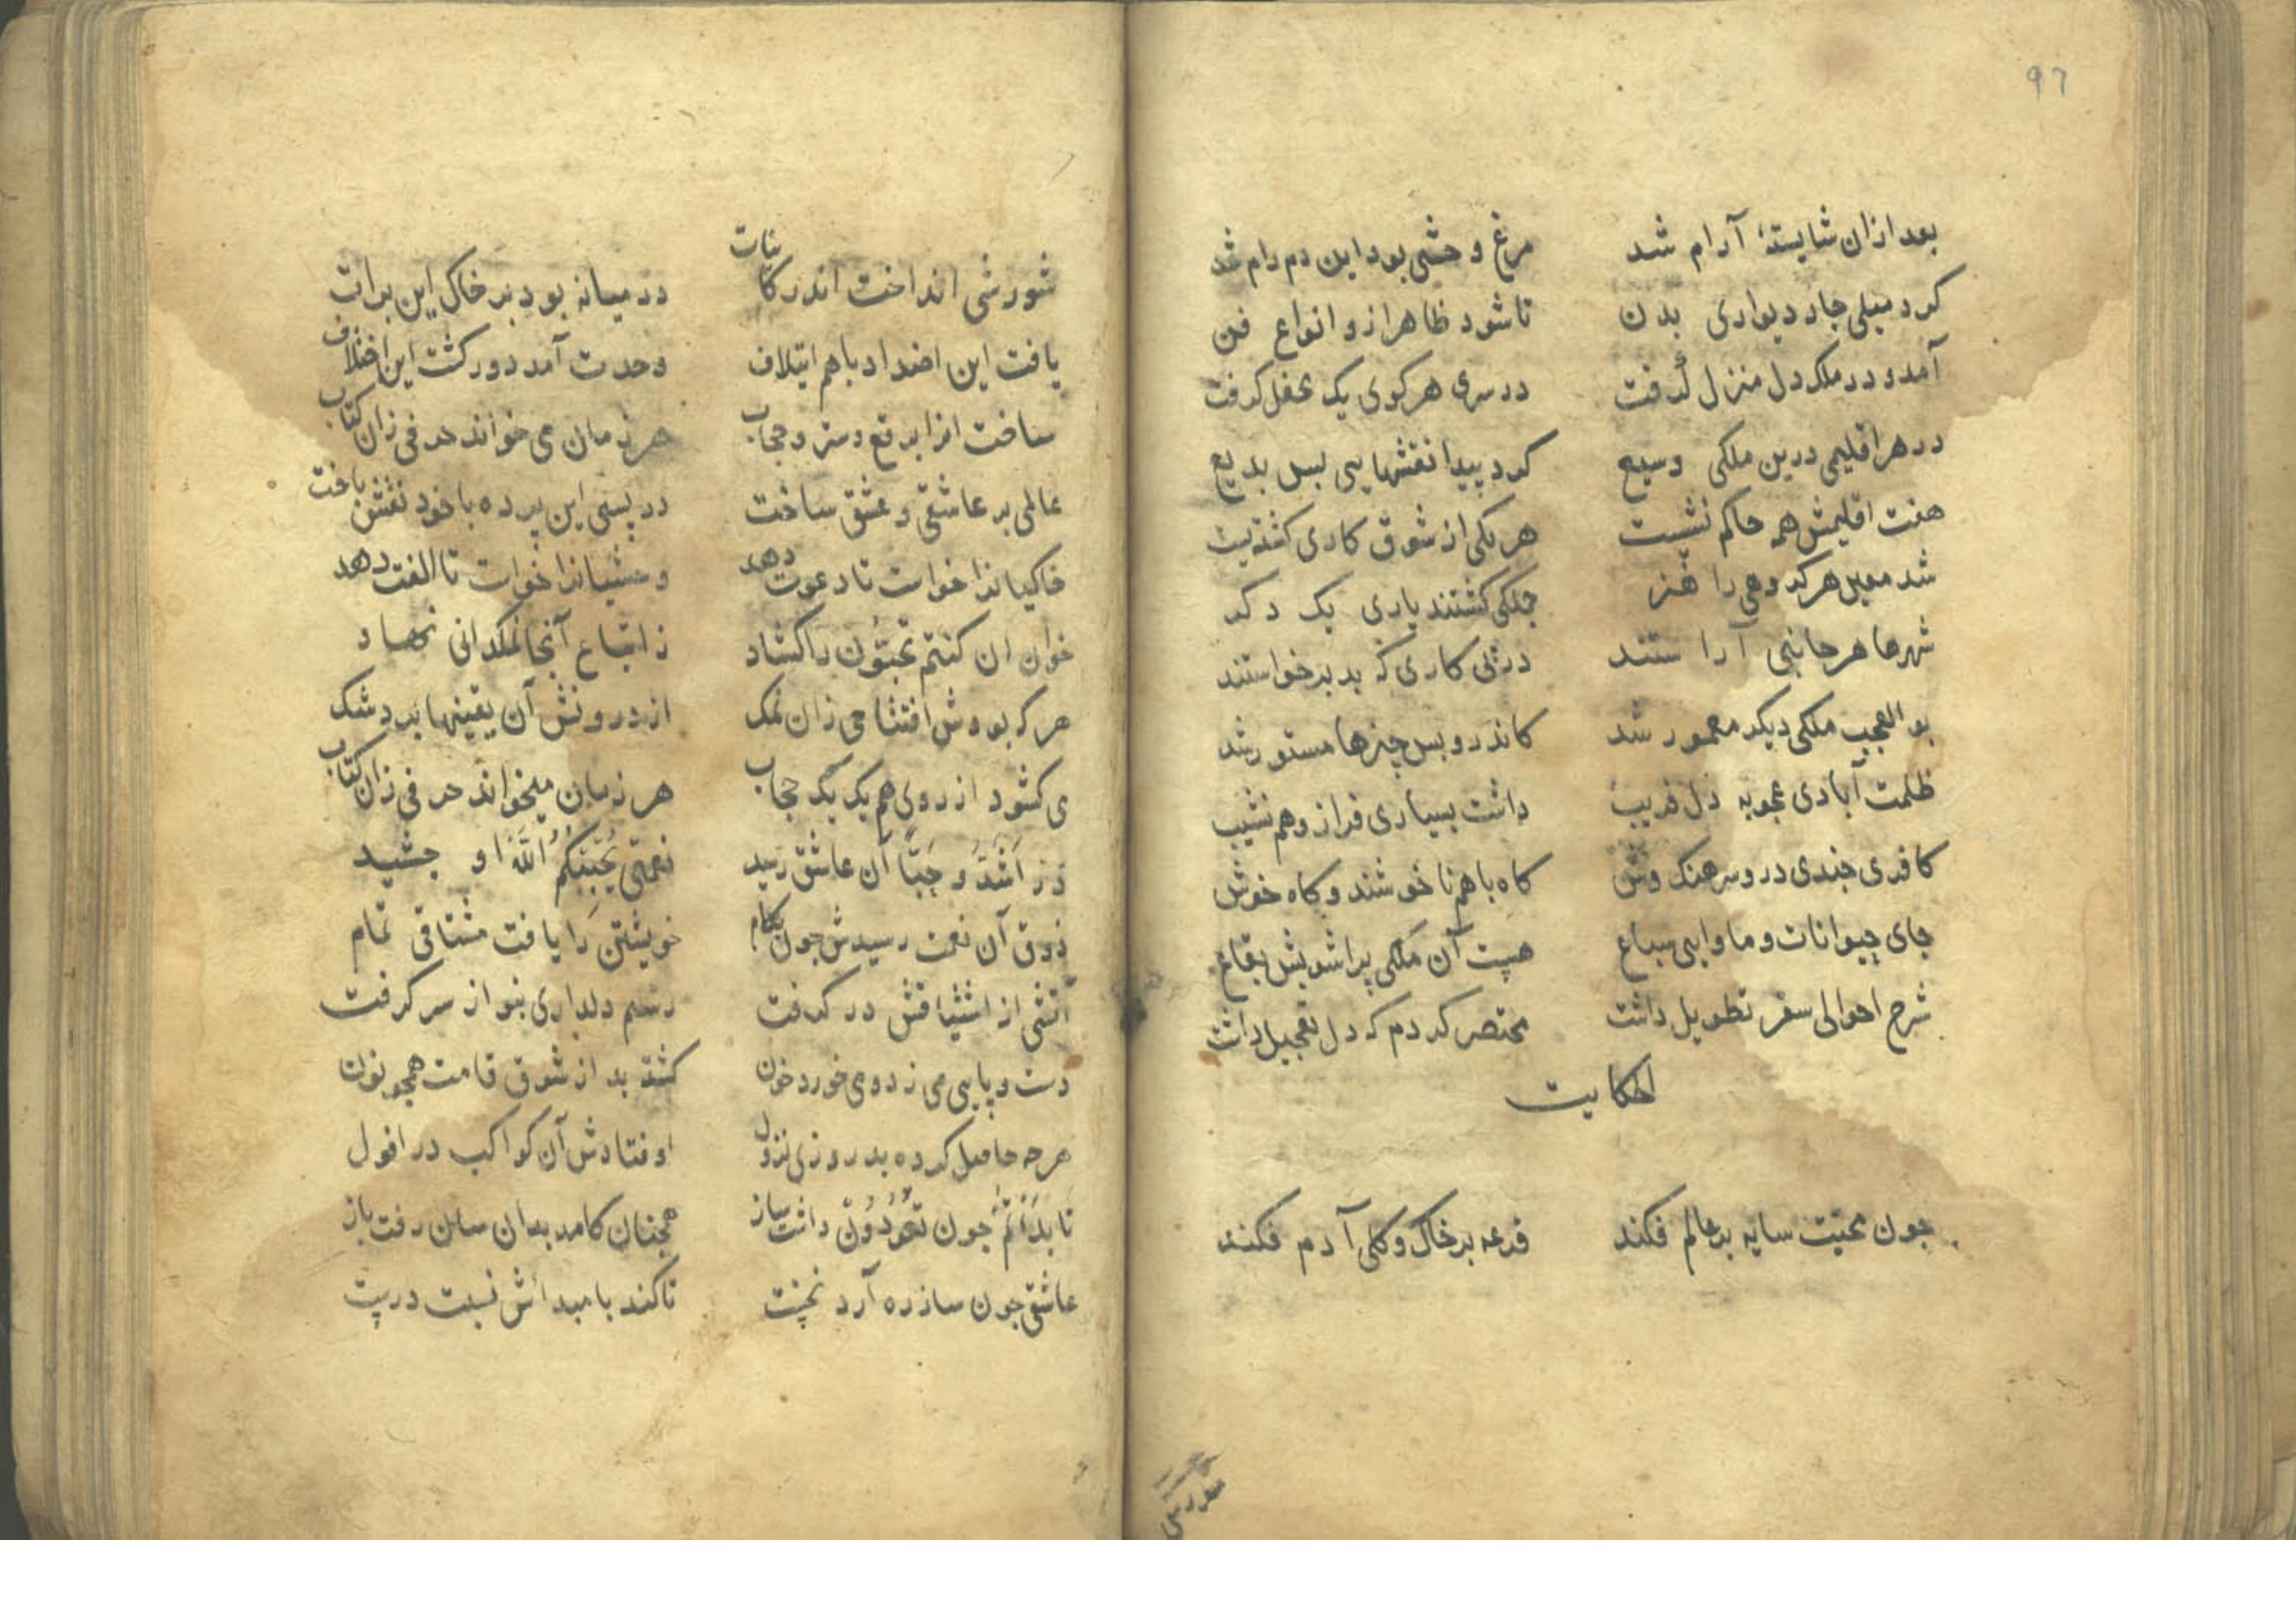 ۹۶
بعد ازان شایستهٔ آرام شد مرغ وحشی بود این دم رام شد
کرد میلی چار دیواری بدن تا شود ظاهر ازو انواع فن
آمد و در ملک دل منزل گرفت در سری هر کوی یک محفل گرفت
در هر اقلیمی درین ملکی وسیع کرد پیدا نقشهایی بس بدیع
هفت اقلیمش همه حاکم نشست هر یکی از شوق کاری کشته
شد معین هر گروهی را هنر جملکی کشتند یاری یک دکر
شهرها هر جانبی آراستند در پی کاری که بد برخواستند
بوالعجب ملکی دیکر معمور شد کاندرو بس چیزها مستور شد
ظلمت آبادی عجوبه دل فریب داشت بسیاری فراز و هم نشیب
کافری چندی درو سرهنک وش کاه با هم ناخوشند و کاه خوش
جای حیوانات و ماوایی سباع هست آن ملکی پر اشویش بقاع
شرح احوالی سفر تطویل داشت مختصر کردم که دل تعجیل داشت
الحکایت
چون محبت سایه بر عالم فکند قرعه بر خاک و کلی آدم فکند
شورشی انداخت اندر کاینات در میانه بود بر خاک این برات
یافت این اضداد باهم ایتلاف وحدت آمد دور کشت این اختلاف
ساخت انرا برقع و ستر و حجاب هر زمان می خواند حرفی زان کتاب
عالمی بر عاشقی و عشق ساخت در پسی این پرده با خود نقش باخت
خاکیانرا خواست تا دعوت دهد وحشیانرا خواست تا الفت دهد
خوان ان کنتم تحبّون را کشاد ز اتباع آنجا نمکدانی نهاد
هر که بودش افتتاحی زان نمک از درونش آن یقینها برد شک
می کشود از روی هم یک یک حجاب هر زمان میخواند حرفی زان کتاب
در اَشَدُّ حُبّاً آن عاشق رسید نعمتی یُحْبِبْکُمُ اللّه او چشید
ذوق آن نعمت رسیدش چون بکام خویشتن را یافت مشتاقی تمام
آتشی از اشتیاقش در کرفت رسم دلداری بنو از سر کرفت
دست و پایی می زد و می خورد خون کشته بد از شوق قامت همچو نون
هرچه حاصل کرده بد روزی نزول اوفتادش آن کواکب در افول
تا بَدَأَکُمْ چون تَعُودُونْ داشت ساز همچنان کامد بدان سان رفت باز
عاشقی چون ساز ره آرد نخست تا کند با مبدائش نسبت درست